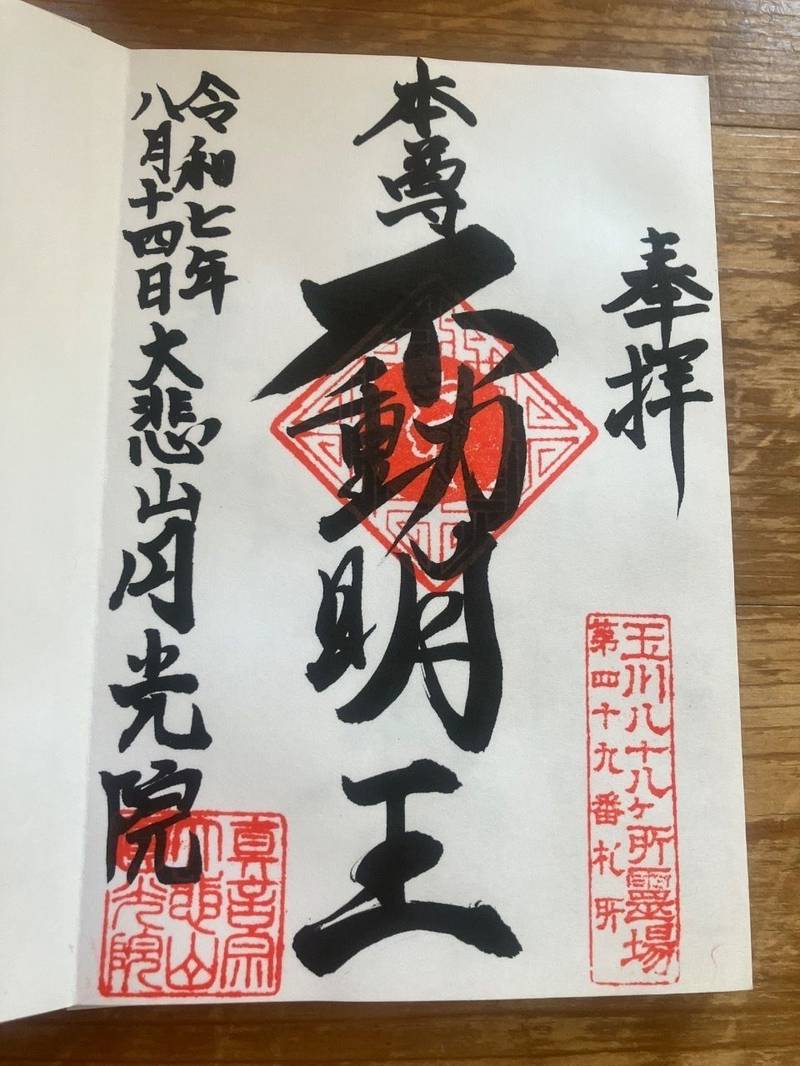 奉拝
玉川八十八ヶ所霊場
第四十九番札所
本尊
不動明王
令和七年
八月十四日 大悲山円光院
真言宗
大悲山
圓光院